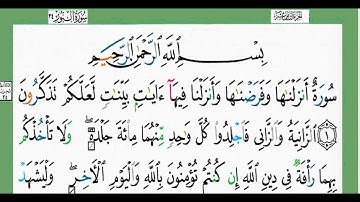 سُورَةُ النُّورِ ٢٤
بِسْمِ ٱللَّهِ ٱلرَّحْمَٰنِ ٱلرَّحِيمِ
سُورَةٌ أَنزَلْنَٰهَا وَفَرَضْنَٰهَا وَأَنزَلْنَا فِيهَآ ءَايَٰتٍۭ بَيِّنَٰتٍ لَّعَلَّكُمْ تَذَكَّرُونَ
١ ٱلزَّانِيَةُ وَٱلزَّانِى فَٱجْلِدُوا۟ كُلَّ وَٰحِدٍ مِّنْهُمَا مِا۟ئَةَ جَلْدَةٍ ۖ وَلَا تَأْخُذْكُم
بِهِمَا رَأْفَةٌ فِى دِينِ ٱللَّهِ إِن كُنتُمْ تُؤْمِنُونَ بِٱللَّهِ وَٱلْيَوْمِ ٱلْأَخِرِ ۖ وَلْيَشْهَدْ